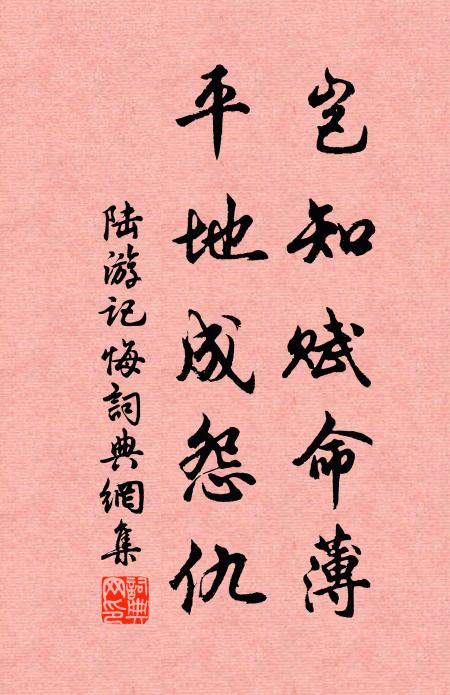 岂知赋命薄
平地成怨仇
陆游记悔詞典網集
詞典网印